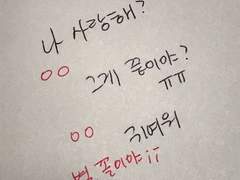 나 사랑해?
ㅇㅇ
그게 끝이야?
ㅠㅠ
ㅇㅇ 귀여워
꼴이야!!